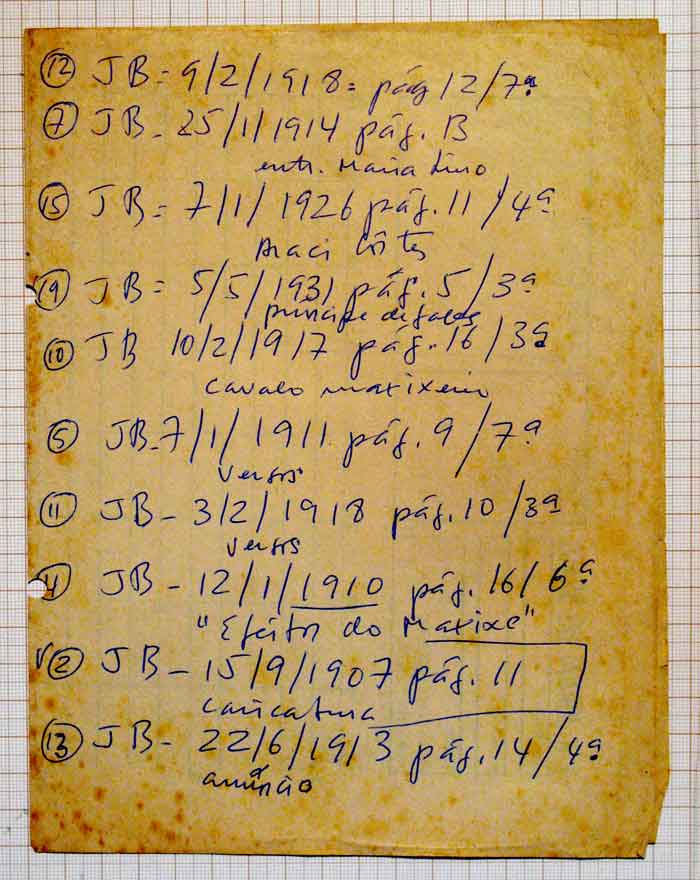 (12) JB = 9/2/1918 = pág 12/7ª
(7) JB - 25/1/1914 pág. 13
entr. Maria Lino
(15) JB = 7/1/1926 pág. 11/4ª
Araci Côrtes
(19) JB = 5/5/1931 pág. 5/3ª
príncipe de galles
(10) JB 10/2/1917 pág. 16/3ª
Cavalo maxixeiro
(5) JB - 7/1/1911 pág. 9/7ª
Versos
(11) JB - 3/2/1918 pág. 10/3ª
versos
(4) JB - 12/1/1910 pág. 16/6ª
"Efeitos do Maxixe"
√(2) JB - 15/9/1907 pág. 11
caricatura
(13) JB - 22/6/1913 pág. 14/4ª
anúncio